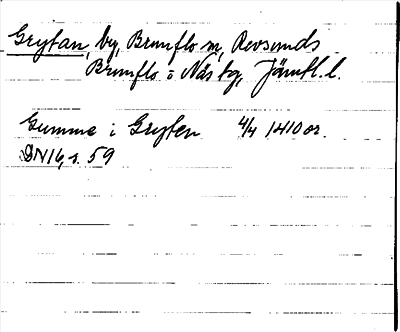 Grytan, by, Brunflo sn, Revsunds
Brunflo o Näs tg, Jämtl. l.
Gumme i Gryten 4/4 1410 or.
DN16, s. 59